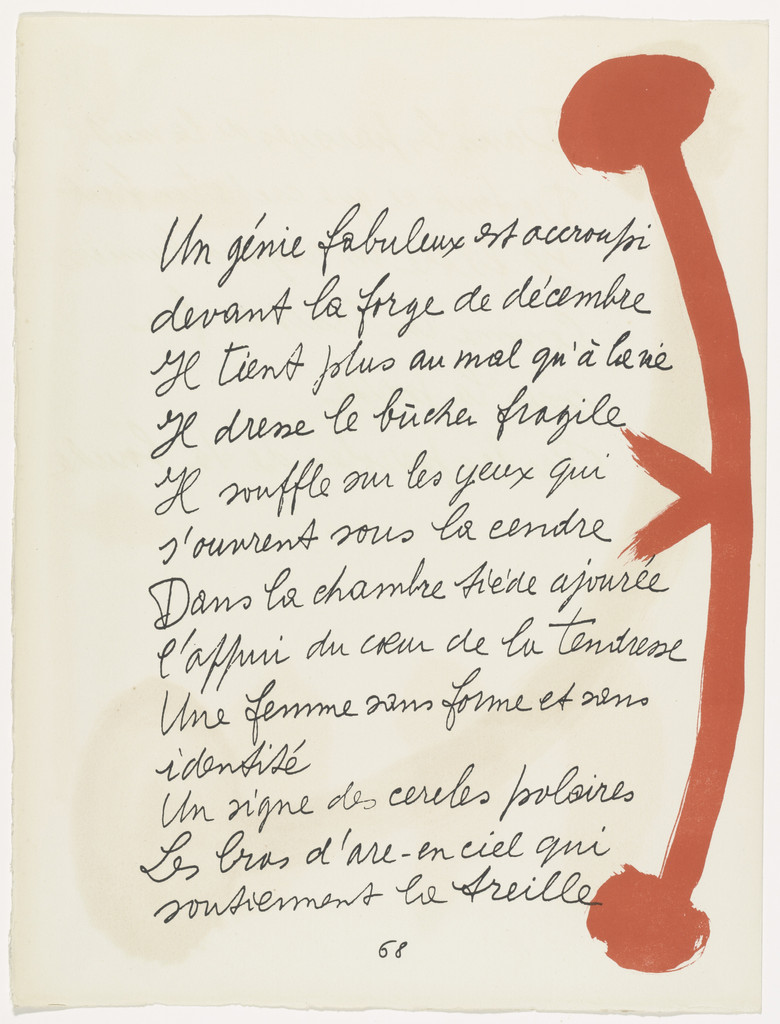 Un génie fabuleux est accroupi
devant la forge de décembre
Il tient plus au mal qu'à la vie
Il dresse le bûcher fragile
Il souffle sur les yeux qui
s'ouvrent sous la cendre
Dans la chambre tiède ajourée
l'appui du cœur de la tendresse
Une femme sans forme et sans
identité
Un signe des cercles polaires
Les bras d'arc-en ciel qui
soutiennent la treille
68